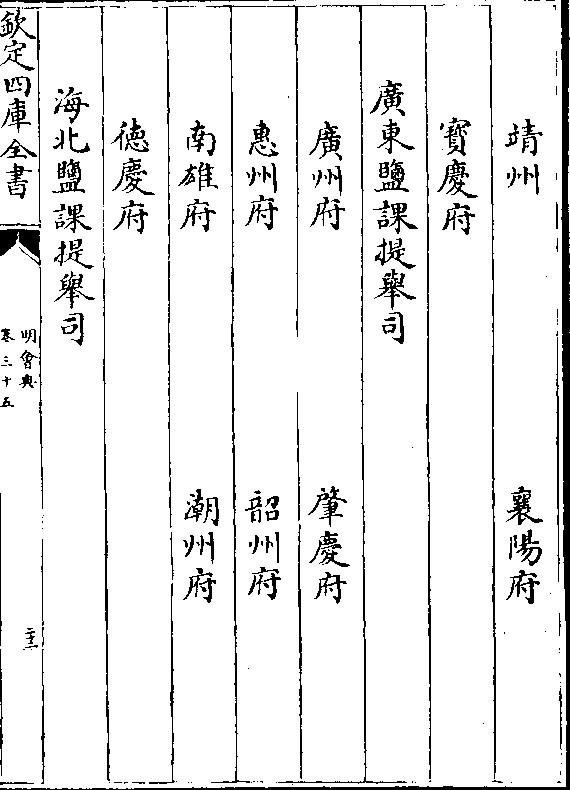 靖州　襄陽府
寳慶府
廣東鹽課提舉司
廣州府　肇慶府
惠州府　韶州府
南雄府　潮州府
德慶府
海北鹽課提舉司
欽定四庫全書
明會典
卷三十五